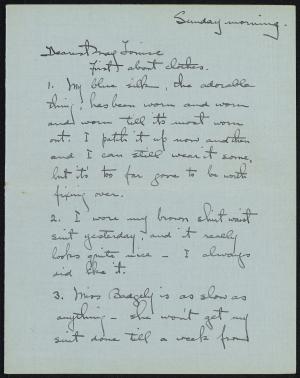 Sunday morning.
Dearest May Louise
First about clothes.
1. My blue silk, the adorable
thing, has been worn and worn
and worn till it's most worn
out. I patch it up now and then
and I can still wear it some,
but it's too far gone to be worth
fixing over.
2. I wore my brown shirt waist
suit yesterday, and it really
looks quite nice – I always
did like it.
3. Miss Badgely is as slow as
anything – she won't get my
suit done till a week from